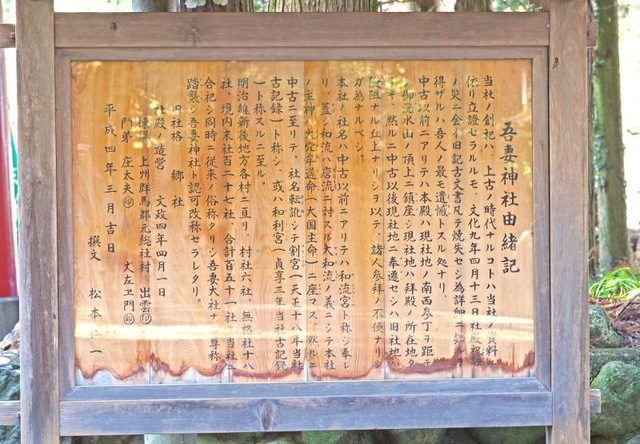 吾妻神社由緒記
当社ノ創祀ハ、上古ノ時代ナルコトハ当社ノ資料ニ
依リ立證セラルルモ、文化九年四月十三日社殿
ノ災ニ会イ旧記古文書凡テ焼失セシ為詳細ニ
得ザルハ吾人ノ最モ遺憾トスル処ナリ。
中古以前ニアリテハ本殿ハ現社地ノ南西参丁ヲ距テ
御洗水山ノ頂上ニ鎮座シ現社地ハ拝殿ノ所在地タ
然ルニ中古以後現社地ニ奉遷セシハ旧社地ハ
阻ナル丘上ナリシヲ以テ、諸人参拝ノ不便ナリシ
ガ為ナルベシ。
本社ノ社名ハ中古以前ニアリテハ和流宮ト称シ奉レ
リ、蓋シ和流ハ唐流ニ対スル大和流ノ義ニシテ本社
ノ主神ハ大穴牟遅命(大国主命)ニ座マス、故ルニ
中古ニ至リテ、社名転訛シテ割宮(天正十八年当社
古記録)ト称シ、或ハ和利宮(貞享三年当社古記録
)ト称スルニ至ル。
明治維新後地方各村ニ亘リ、村社六社、無格社十八
社、境内末社百二十七社、合計百五十一社ヲ当社ニ
合祀シ同時ニ従来ノ俗称タリシ吾妻大社ナル尊称ヲ
踏襲シ吾妻神社ト認可改称セラレタリ。
旧社格 郷社
社殿ノ造営 文政四年四月一日
棟梁 上州群馬郡元総社村 出雲㊞
門弟 座太夫㊞ 丈左ヱ門㊞
平成四年三月吉日
撰文 松本仁一